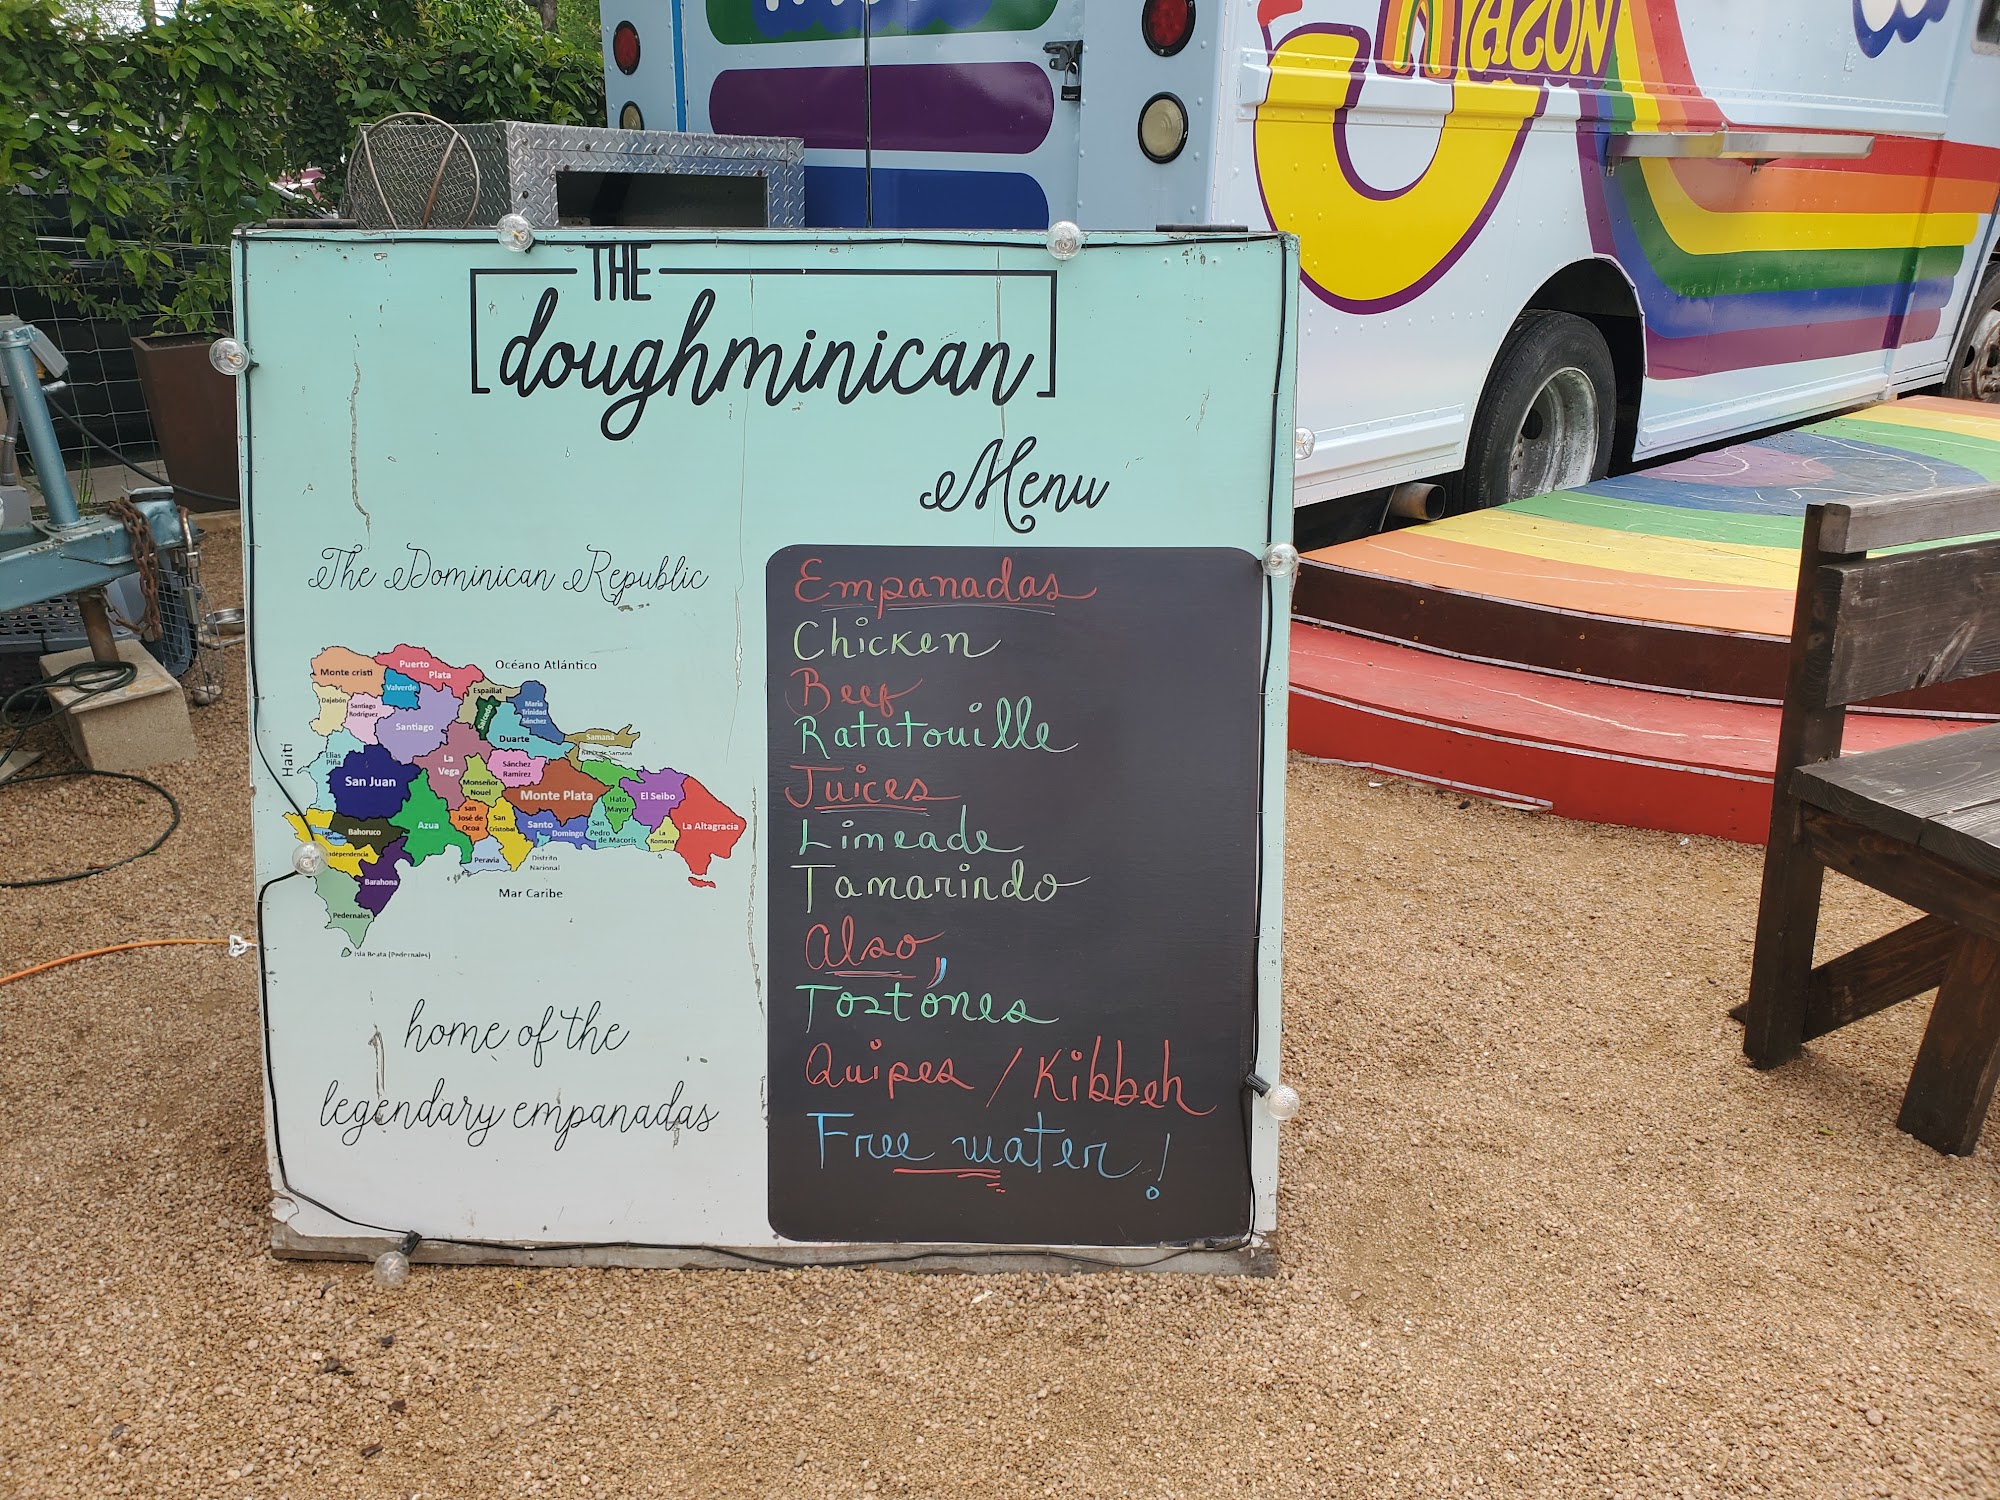 THE
doughminican
Menu
The Dominican Republic
Océano Atlántico
Monte cristi
Puerto Plata
Valverde
Espaillat
Dajabón
Santiago Rodríguez
Santiago
Salcedo
María Trinidad Sánchez
Duarte
Samaná
Haití
Elías Piña
San Juan
La Vega
Sánchez Ramírez
Monseñor Nouel
Monte Plata
Hato Mayor
El Seibo
La Altagracia
Azua
San José de Ocoa
San Cristobal
Santo Domingo
San Pedro de Macorís
La Romana
Bahoruco
Independencia
Barahona
Peravia
Distrito Nacional
Pedernales
Mar Caribe
Isla Beata (Pedernales)
home of the
legendary empanadas
Empanadas
Chicken
Beef
Ratatouille
Juices
Limeade
Tamarindo
Also,
Tostones
Quipes / Kibbeh
Free water!